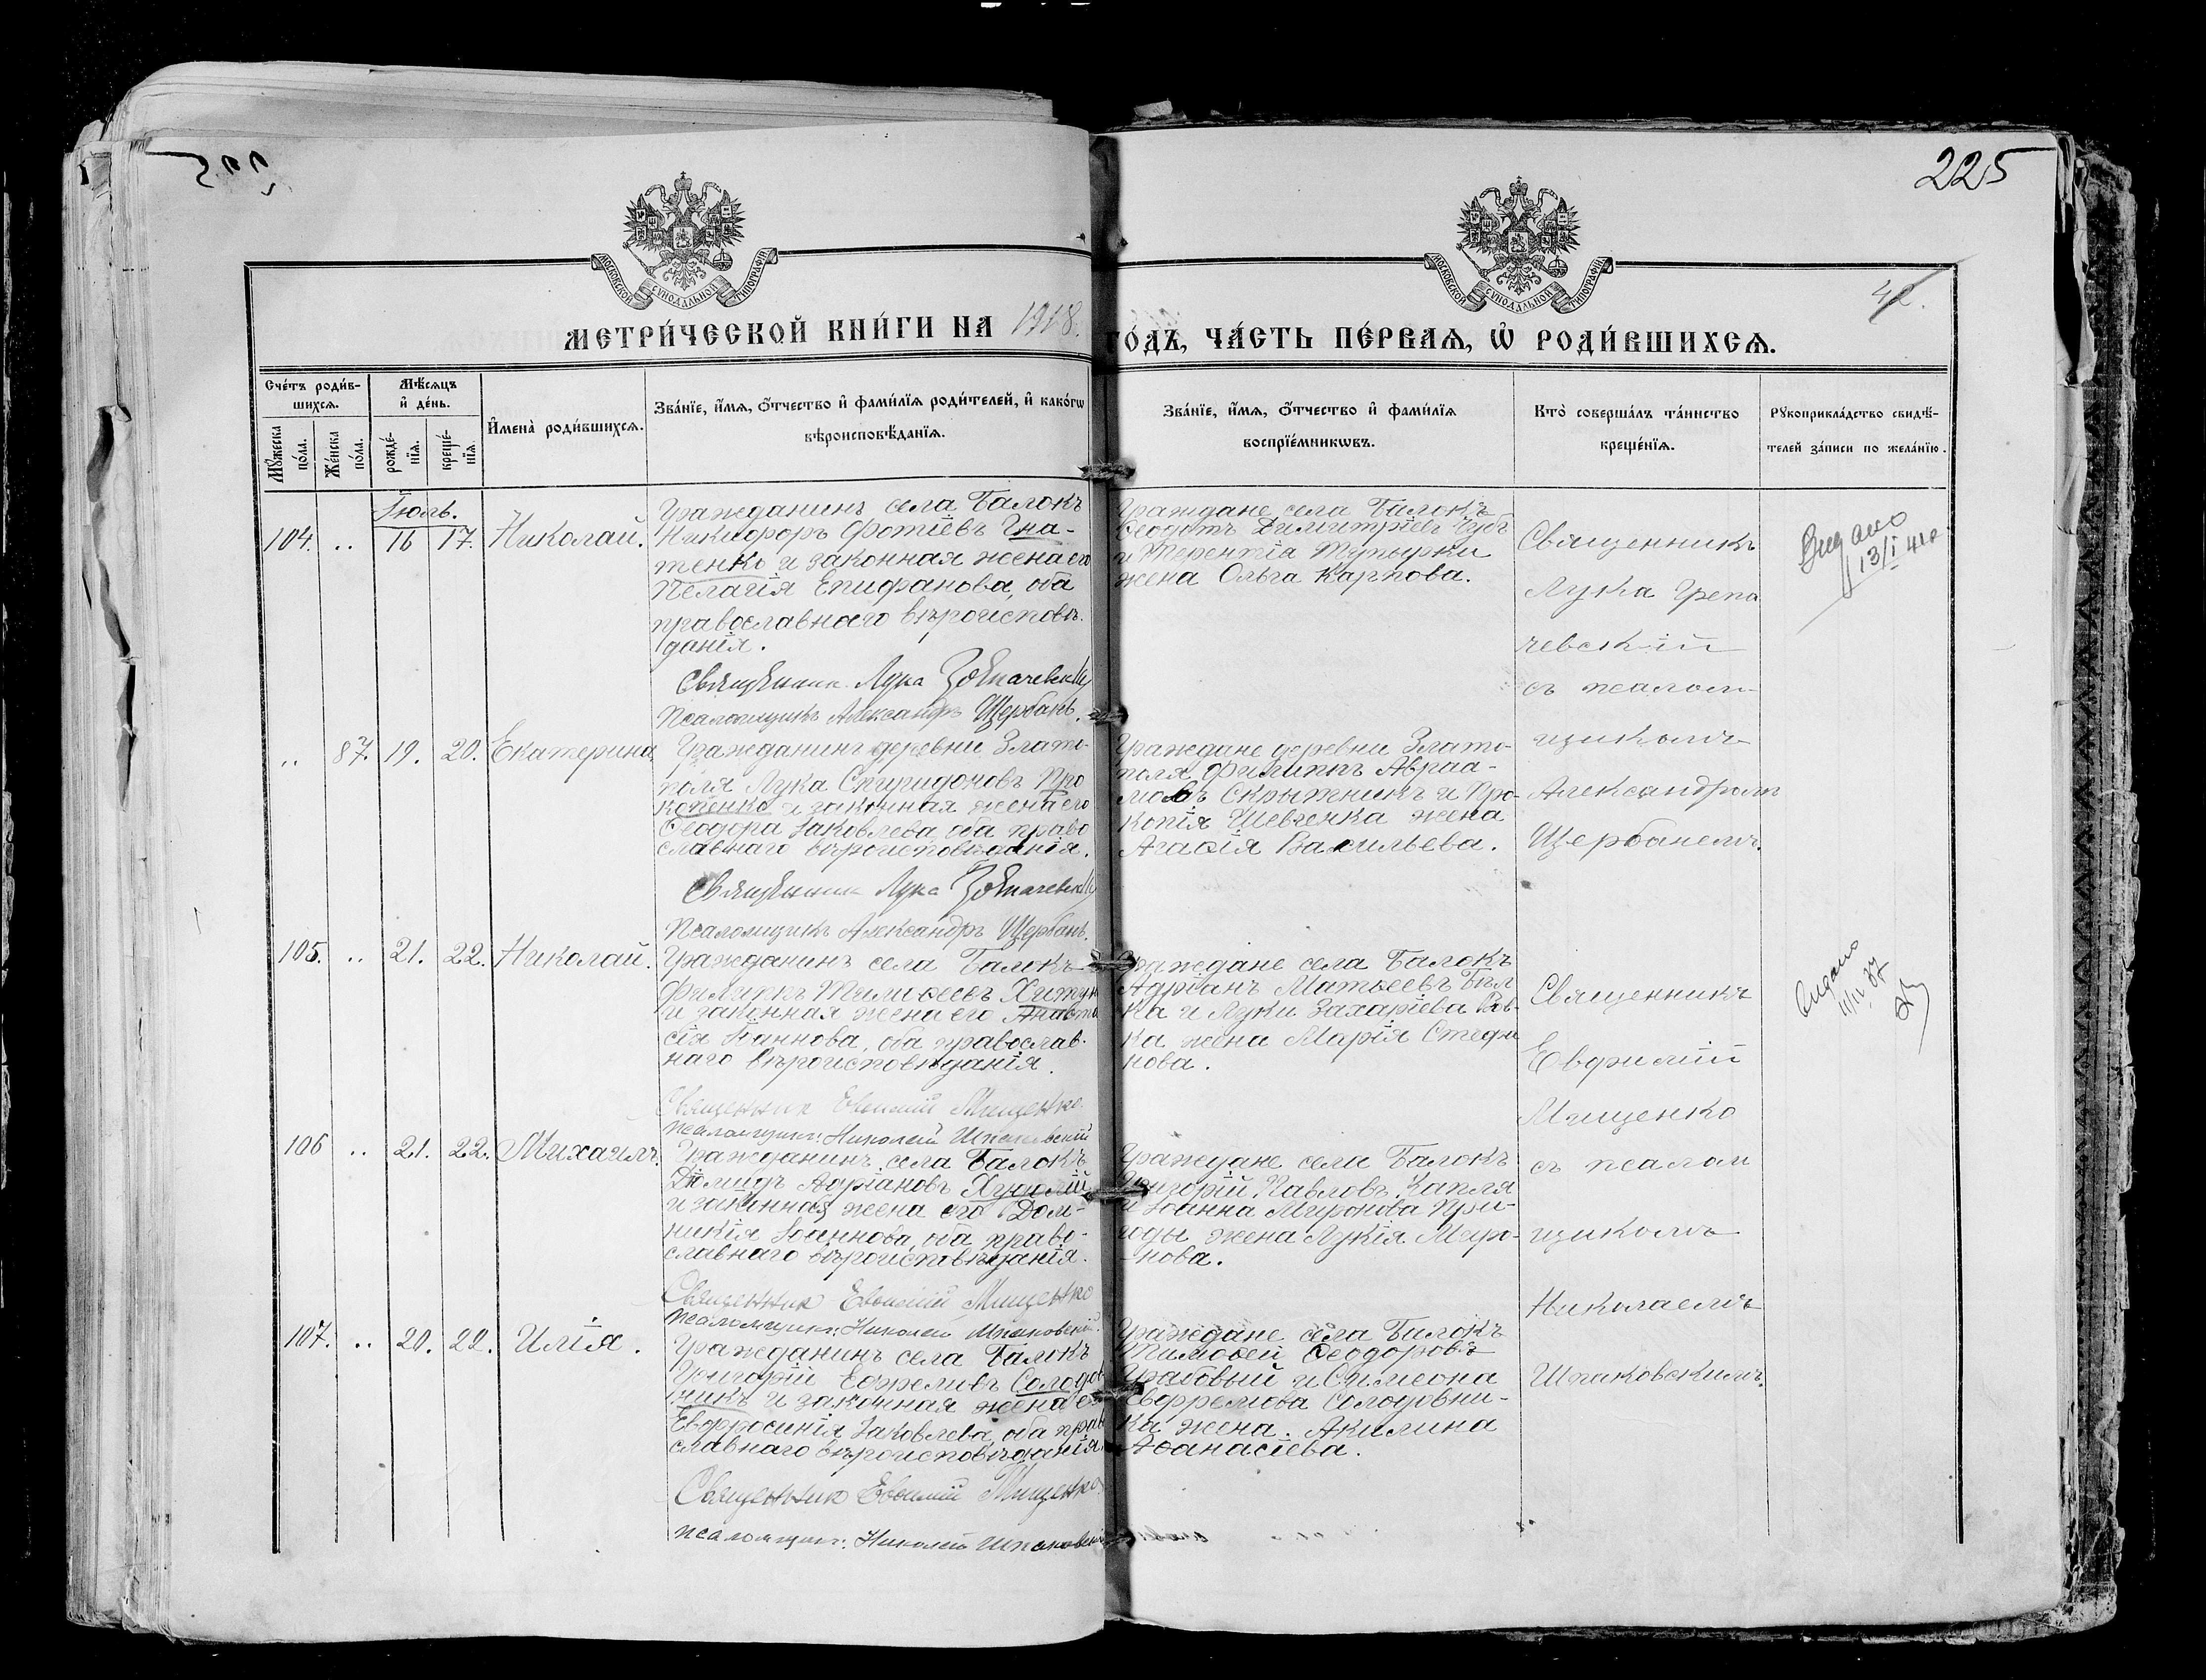 225
42.
МОСКОВСКОЙ СѴНОДАЛЬНОЙ ТИПОГРАФІИ
МОСКОВСКОЙ СѴНОДАЛЬНОЙ ТИПОГРАФІИ
МЕТРИ́ЧЕСКОЙ КНИ́ГИ НА 1918. ГО́ДЪ, ЧА́СТЬ ПЕ́РВАЯ, Ѡ РОДИ́ВШИХСЯ.
Сче́тъ роди́в-
шихся.
Мꙋ́жеска по́ла.
Же́нска по́ла.
Мѣ́сяцъ
и҆ де́нь.
рожде́-
нїя.
креще́-
нїя.
И҆мена̀ роди́вшихся.
Зва́нїе, и҆́мя, ѻ҆́тчество и҆ фами́лїя роди́телей, и҆ како́гѡ
вѣроисповѣ́данїя.
Зва́нїе, и҆́мя, ѻ҆́тчество и҆ фами́лїя
воспрїе́мникѡвъ.
Кто̀ соверша́лъ та́инство
креще́нїя.
Рꙋкоприкла́дство свидѣ́-
телей за́писи по жела́нїю.
Іюль.
104. .. 16 17. Николай.
Гражданинъ села Балокъ
Никифоръ Фотіевъ Гна-
тенко и законная жена его
Пелагія Епифанова, оба
православнаго вѣроисповѣ-
данія.
Священникъ Лука
Псаломщикъ Александръ Щербань.
Граждане села Балокъ
Ѳеодотъ Димитріевъ Чубъ
и Терентія
жена Ольга Карпова.
Священникъ
Лука
чевскій
съ псалом-
щикомъ
Александромъ
Щербанемъ.
Видано
13/I 41
.. 87. 19. 20. Екатерина
Гражданинъ деревни Злато-
поля Лука Спиридоновъ Про
копенко и законная жена его
Ѳеодора Іаковлева, оба право
славнаго вѣроисповѣданія.
Священникъ Лука
Псаломщикъ Александръ Щербань.
Граждане деревни Злато-
поля Филиппъ Авраа-
мовъ Скрытникъ и Про-
копія Шевченка жена
Агафія Васильева.
105. .. 21. 22. Николай.
Гражданинъ села Балокъ
Филиппъ Тимоѳеевъ
и законная жена его Анаста
сія Іоаннова, оба православ-
наго вѣроисповѣданія.
Священник Евѳимій Мищенко
псаломщикъ: Николай Шпаковскій
Граждане села Балокъ
Адріанъ Матѳеевъ Бѣл
ка и Луки Захаріева Вов-
ка жена Марія Стефа
нова.
Священникъ
Евфимій
Мищенко
съ псалом
щикомъ
Николаемъ
Шпаковскимъ.
Видано
11/IV 37
106 .. 21. 22. Михаилъ.
Гражданинъ села Балокъ
Діомидъ Адріановъ Худолій
и законная жена его Дом-
никія Іоаннова, оба право-
славнаго вѣроисповѣданія.
Священник Евѳимій Мищенко
псаломщикъ: Николай Шпаковскій.
Граждане села Балокъ
Григорій Павловъ Капля
и Іоанна Миронова При-
годы жена Лукія Миро-
-нова.
107. .. 20. 22. Илія.
Гражданинъ села Балокъ
Григорій Ефремовъ Солодов
никъ и законная жена его
Евфросинія Іаковлева, оба прав
славнаго вѣроисповѣданія
Священник Евѳимій Мищенко
псаломщикъ: Николай Шпаковскій
Граждане села Балокъ
Тимоѳей Ѳеодоровъ
Грабовый и Симеона
Евфремова Солодовни-
ка жена Акилина
Аѳанасіева.